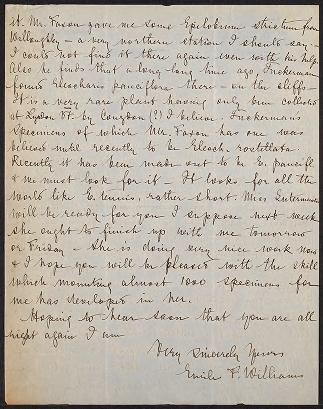 it. Mr. Faxon gave me some Epilobium strictum from
Willoughby - a very northern station I should say -
I could not find it there again even with his help.
Also he finds that a long-long time ago, Tuckerman
found Eleocharis pauciflora there - on the cliffs -
It is a very rare plant having only been collected
at Lyndon Vt. by Congdon (?) I believe. Tuckerman's
specimens of which Mr. Faxon has one was
believed until recently to be Eleoch. rostellata.
Recently it has been made out to be E. paucifl.
& we must look for it - It looks for all the
world like E. tenuis, rather short. Miss
will be ready for you I suppose next week
she ought to finish up with me tomorrow
or Friday - She is doing very nice work now
& I hope you will be pleased with the skill
which mounting almost 1000 specimens for
me has developed in her.
Hoping to hear soon that you are all
right again I am
Very Sincerely Yours
Emile F. Williams